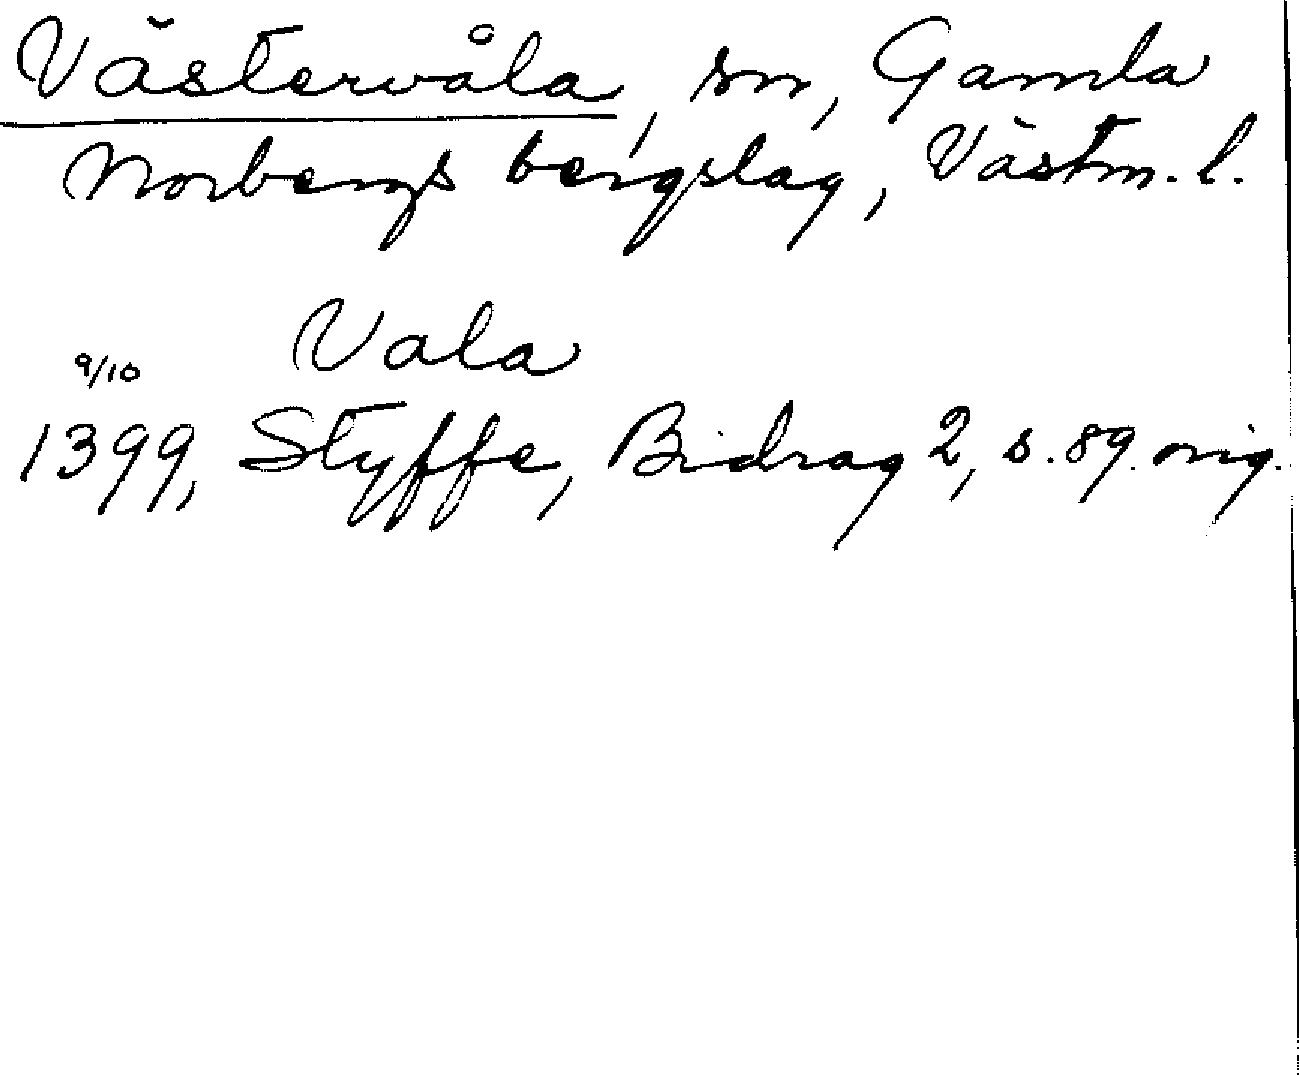 Västervåla, sn, Gamla
Norbergs bergslag, Västm. l.
Vala
9/10
1399, Styffe, Bidrag 2, s. 89. orig.